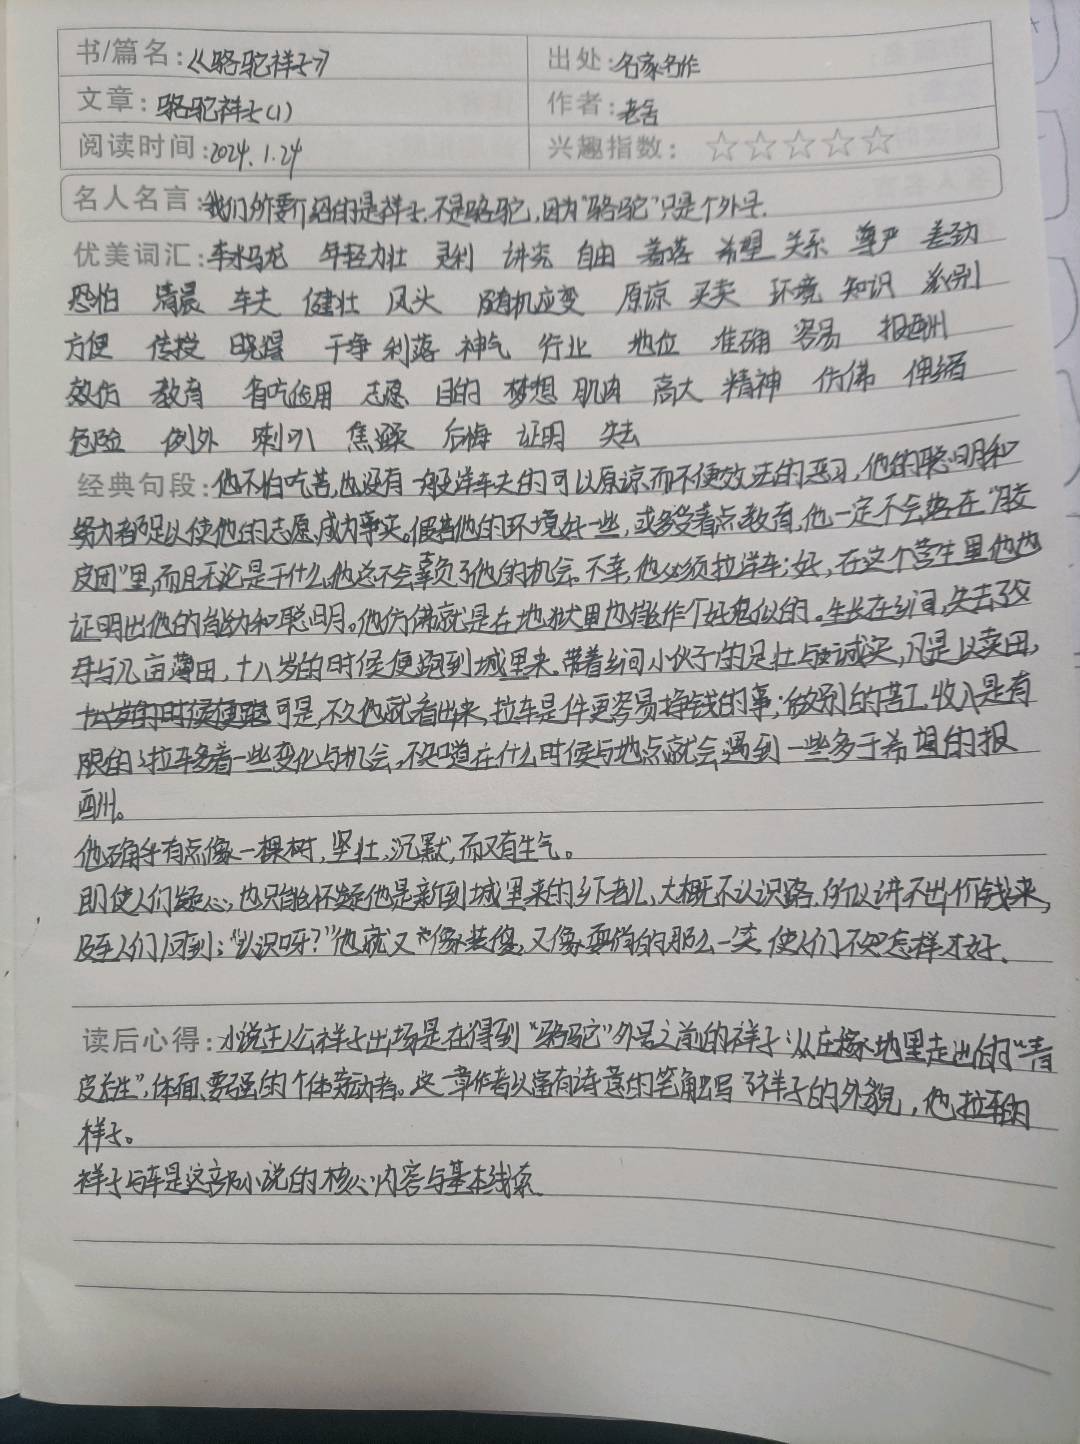 书/篇名:《骆驼祥子》 出处:名家名作
文章:骆驼祥子(1) 作者:老舍
阅读时间:2024.1.24 兴趣指数:☆☆☆☆☆
名人名言:我们所要介绍的是祥子,不是骆驼,因为"骆驼"只是个外号.
优美词汇:车水马龙 年轻力壮 灵利 讲究 自由 着落 希望 关系 尊严 差劲
恐怕 清晨 车夫 健壮 风头 随机应变 原谅 买卖 环境 知识 系列
方便 传授 晓得 干净 利落 神气 行业 地位 准确 容易 报酬
效仿 教育 省吃俭用 志愿 目的 梦想 肌肉 高大 精神 仿佛 伸缩
危险 例外 喇叭 焦躁 后悔 证明 失去
经典句段:他不怕吃苦,也没有一般洋车夫的可以原谅而不便效法的恶习,他的聪明和
努力都足以使他的志愿成为事实。假若他的环境好一些,或多受着点教育,他一定不会落在"胶
皮团"里,而且无论是干什么,他总不会辜负了他的机会。不幸,他必须拉洋车;好,在这个营生里他也
证明出他的能力和聪明。他仿佛就是在地狱里也能作个好鬼似的。生长在乡间,失去了父
母与几亩薄田,十八岁的时候便跑到城里来.带着乡间小伙子的足壮与诚实,凡是以卖田,
十八岁的时候便跑可是,不久他就看出来,拉车是件更容易挣钱的事;做别的苦工,收入是有
限的;拉车多着一些变化与机会,不知道在什么时候与地点就会遇到一些多于希望的报
酬。
他确乎有点像一棵树,坚壮,沉默,而又有生气。
即使人们疑心,也只能怀疑他是新到城里来的乡下老儿,大概不认识路,所以讲不出价钱来,
及至人们问到:"认识呀?"他就又像装傻,又像耍俏的那么一笑,使人们不知怎样才好.
读后心得:小说主人公祥子出场是在得到"骆驼"外号之前的祥子:从庄稼地里走出的"青
皮后生",体面、要强的个体劳动者。这一章作者以富有诗意的笔触写了祥子的外貌,他拉车的
样子。
祥子与车是这部小说的核心内容与基本线索.